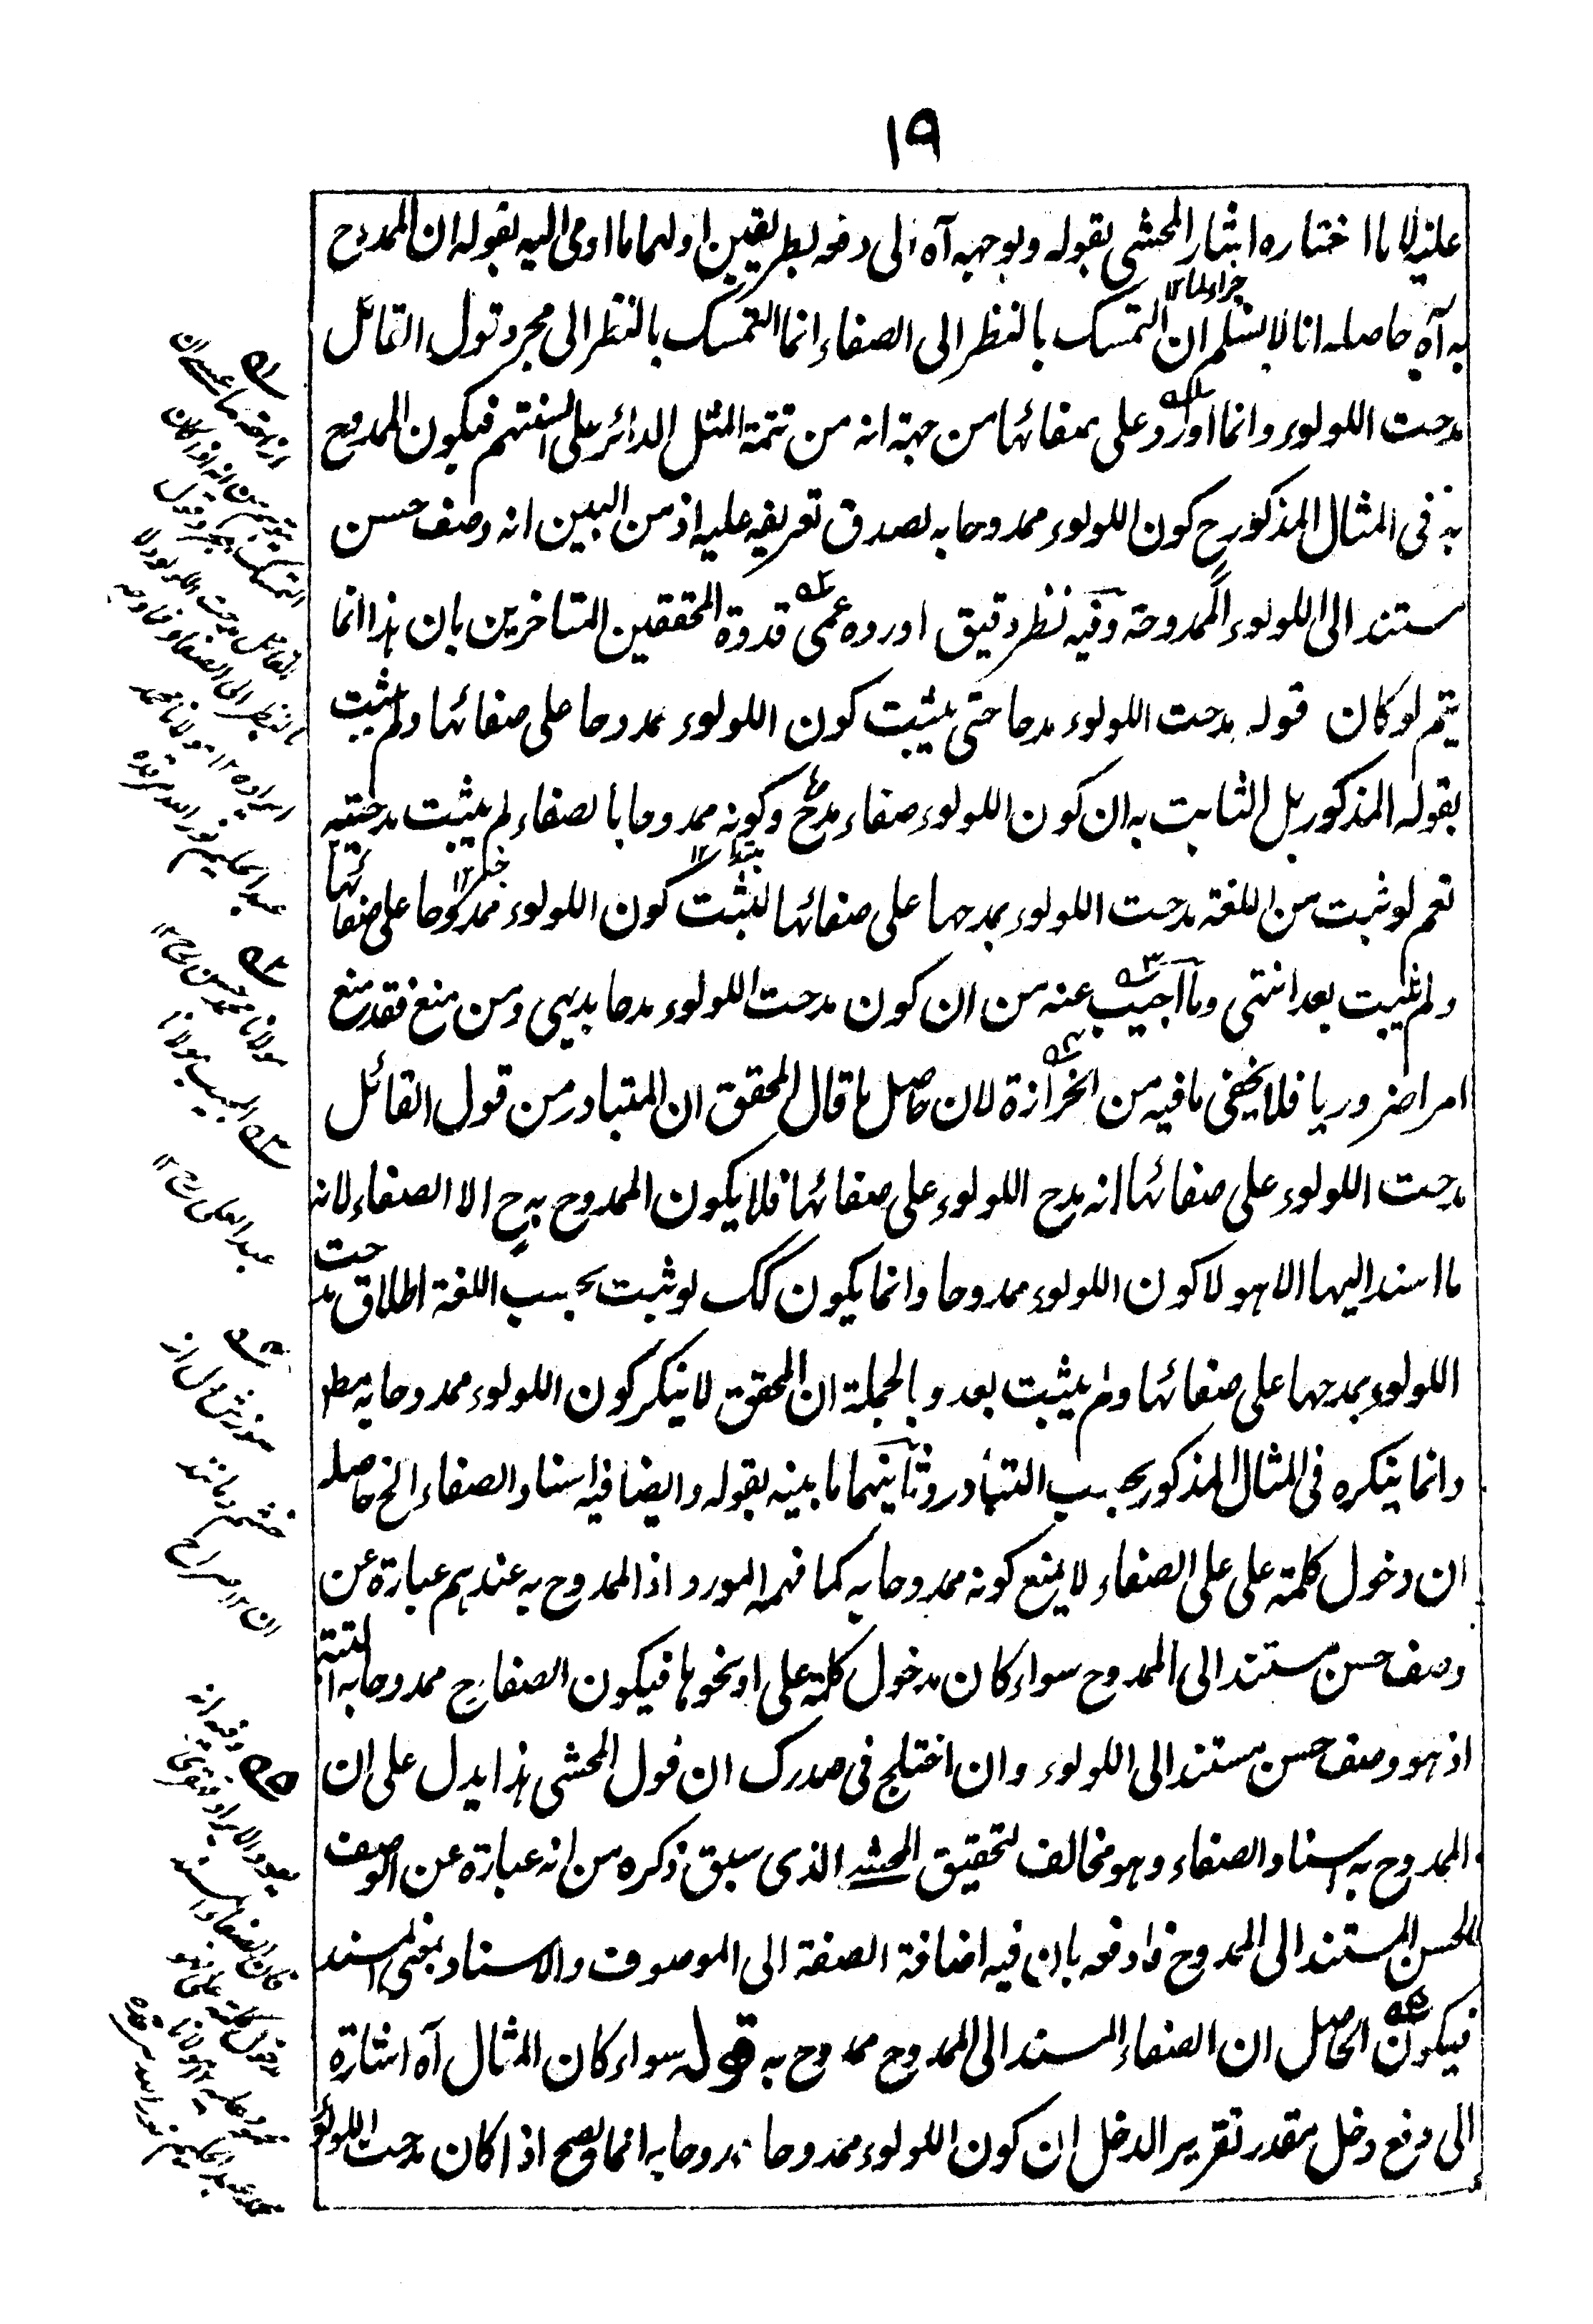 ١٩
عليه لا ما اختاره اشار المحشى بقوله وبوجهه آه الى دفعه بطريقين اولهما ما اومى اليه بقوله ان الممدوح
به آه حاصله انا لا نسلم ان التمسك بالنظر الى الصفاء انما التمسك بالنظر الى مجرد قول القائل
مدحت اللولوء وانما اورد على صفائها من جهة انه من تتمة المثل الدائر على السنتهم فيكون الممدوح
به فى المثال المذكور ح كون اللولوء ممدوحا به لصدق تعريفه عليه اذ من البين انه وصف حسن
مستند الى اللولوء الممدوحة وفيه نظر دقيق اورده عمى قدوة المحققين المتاخرين بان هذا انما
يتم لو كان قوله مدحت اللولوء مدحا حتى يثبت كون اللولوء ممدوحا على صفائها ولم يثبت
بقوله المذكور بل الثابت به ان كون اللولوء صفاء مدح وكونه ممدوحا بالصفاء لم يثبت مدحيته
نعم لو ثبت من اللغة مدحت اللولوء بمدحها على صفائها لثبت كون اللولوء ممدوحا على صفائها
ولم يثبت بعد انتهى وما اجيب عنه من ان كون مدحت اللولوء مدحا بديهى ومن منع فقد منع
امرا ضروريا فلا يخفى ما فيه من الخزازة لان حاصل ما قال المحقق ان المتبادر من قول القائل
مدحت اللولوء على صفائها انه مدح اللولوء على صفائها فلا يكون الممدوح به ح الا الصفاء لانه
ما اسند اليها الا هو لا كون اللولوء ممدوحا وانما يكون كك لو ثبت بحسب اللغة اطلاق مدحت
اللولوء بمدحها على صفائها ولم يثبت بعد وبالجملة ان المحقق لا ينكر كون اللولوء ممدوحا به مط
وانما ينكره فى المثال المذكور بحسب التبادر وثانيهما ما بينه بقوله وايضا فيه اسناد الصفاء الخ حاصله
ان دخول كلمة على على الصفاء لا يمنع كونه ممدوحا به كما فهمه المورد اذ الممدوح به عندهم عبارة عن
وصف حسن مستند الى الممدوح سواء كان مدخول كلمة على او نحوها فيكون الصفا ح ممدوحا به البتة
اذ هو وصف حسن مستند الى اللولوء وان اختلج فى صدرك ان قول المحشى هذا يدل على ان
الممدوح به اسناد الصفاء وهو مخالف لتحقيق المحشى الذى سبق ذكره من انه عبارة عن الوصف
الحسن المستند الى الممدوح فادفعه بان فيه اضافة الصفة الى الموصوف والاسناد بمعنى المسند
فيكون الحاصل ان الصفاء المسند الى الممدوح ممدوح به قوله سواء كان المثال آه اشارة
الى دفع دخل مقدر تقرير الدخل ان كون اللولوء ممدوحا ممدوحا به انما يصح اذا كان مدحت اللولوء